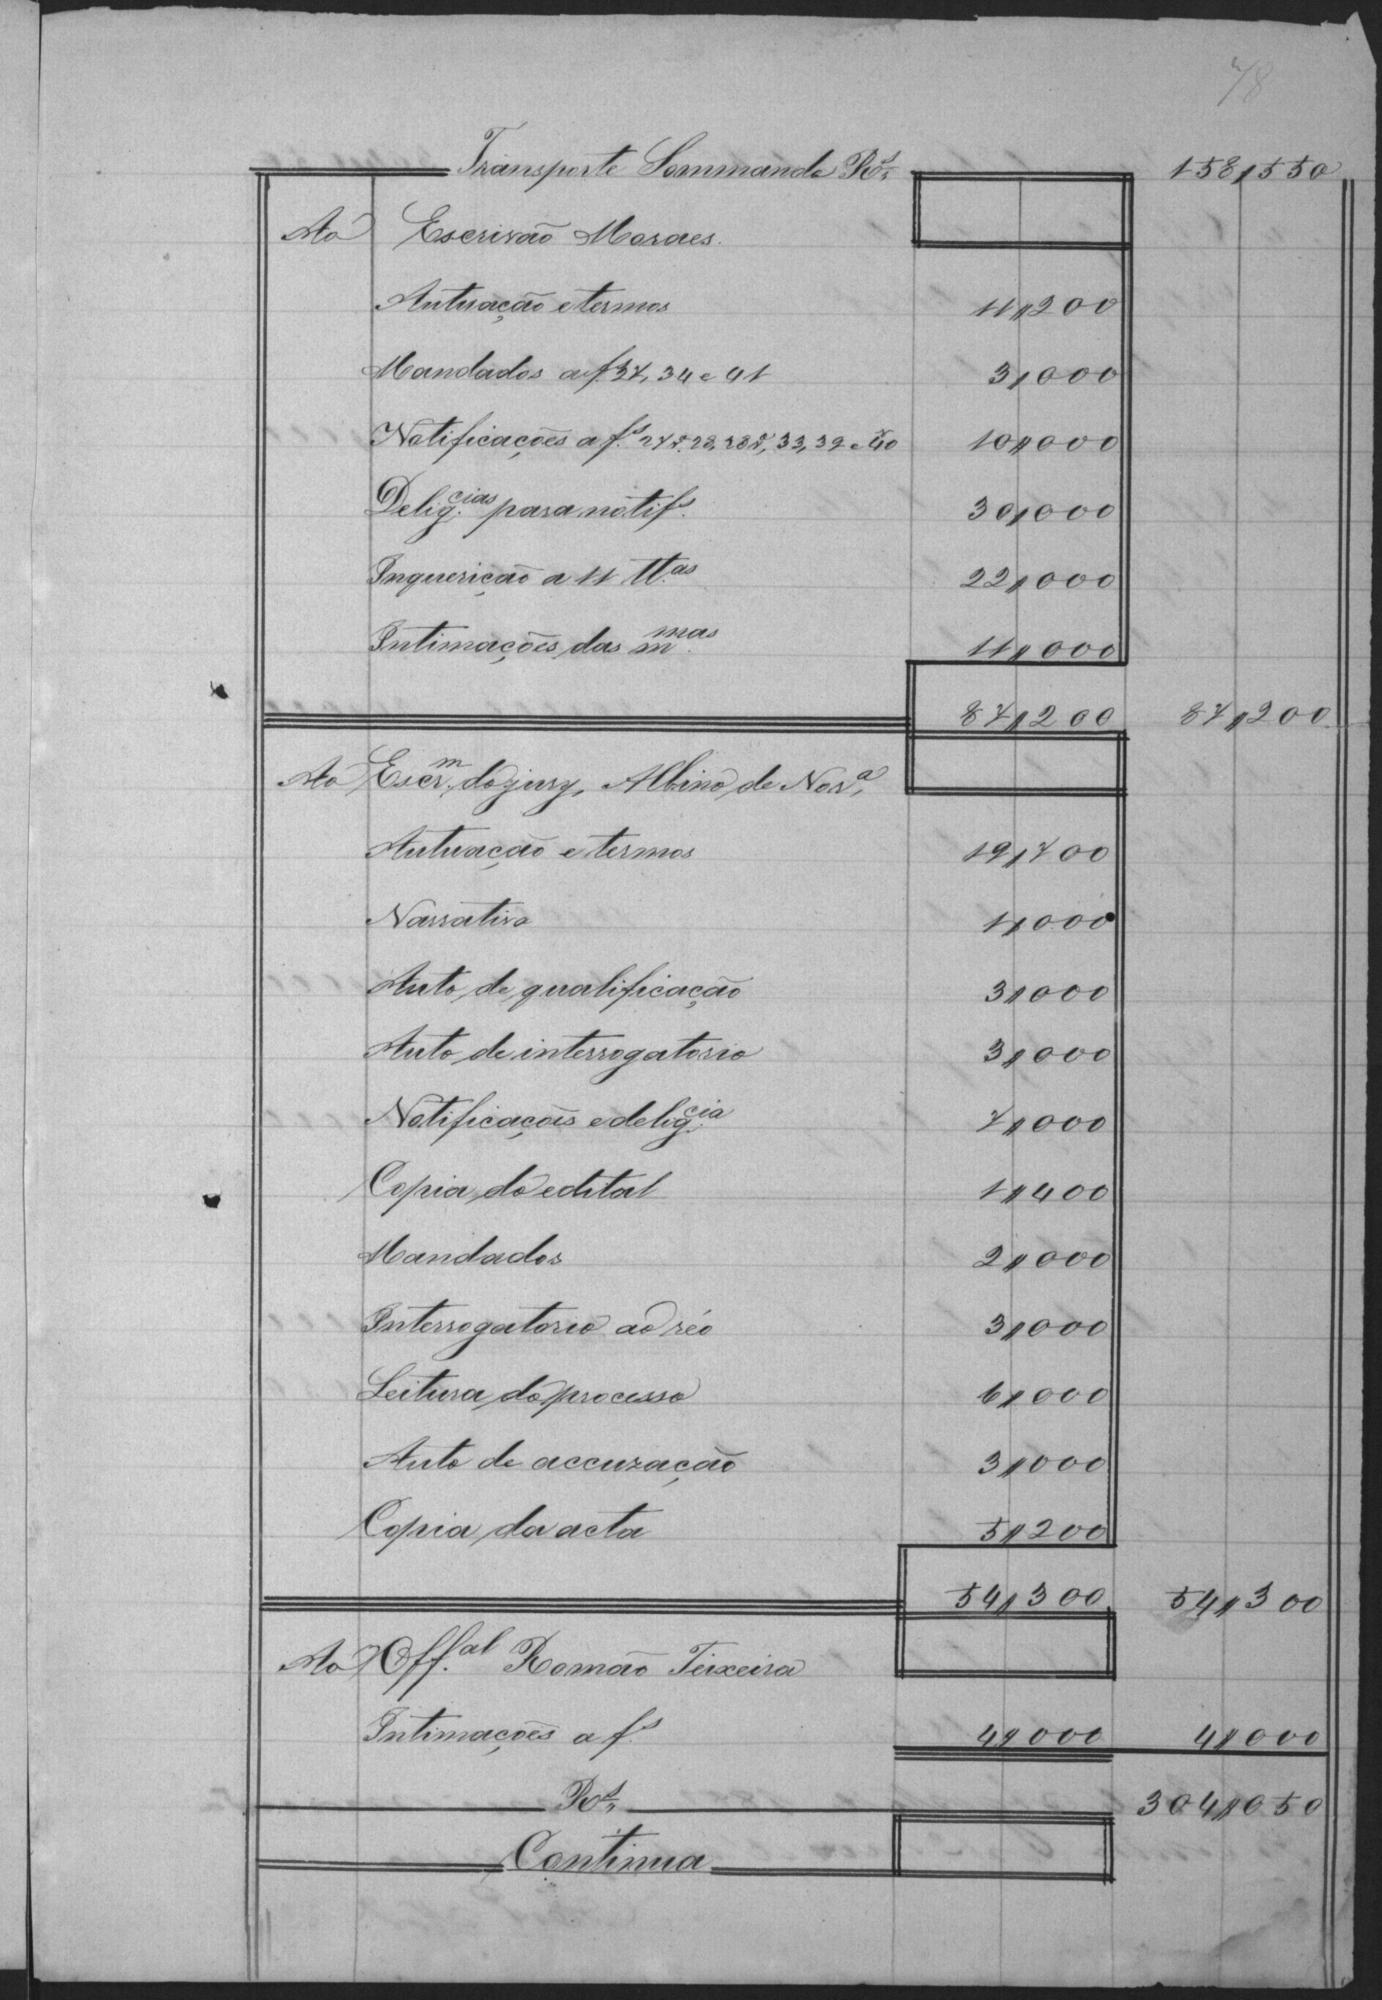 78
Transporte Sommando Rs. 158$550
Ao Escrivão Moraes.
Autuação e termos 11$200
Mandados a f. 27, 34 e 41 3$000
Notificações a fs. 27v. 28, 28v, 33, 39 e 40 10$000
Delig.cias para notifs. 30$000
Inquerição a 11 tt.as 22$000
Intimações das m.mas 11$000
87$200 87$200
Ao Escr.m do jury, Albino de Nor.a
Autuação e termos 19$700
Narrativa 1$000
Auto de qualificação 3$000
Auto de interrogatorio 3$000
Notificações e delig.cia 7$000
Copia do edital 1$400
Mandados 2$000
Interrogatorio ao réo 3$000
Leitura do processo 6$000
Auto de accuzação 3$000
Copia da acta 5$200
54$300 54$300
Ao Off.al Romão Teixeira
Intimações a fs. 4$000 4$000
Rs. 304$050
Continua